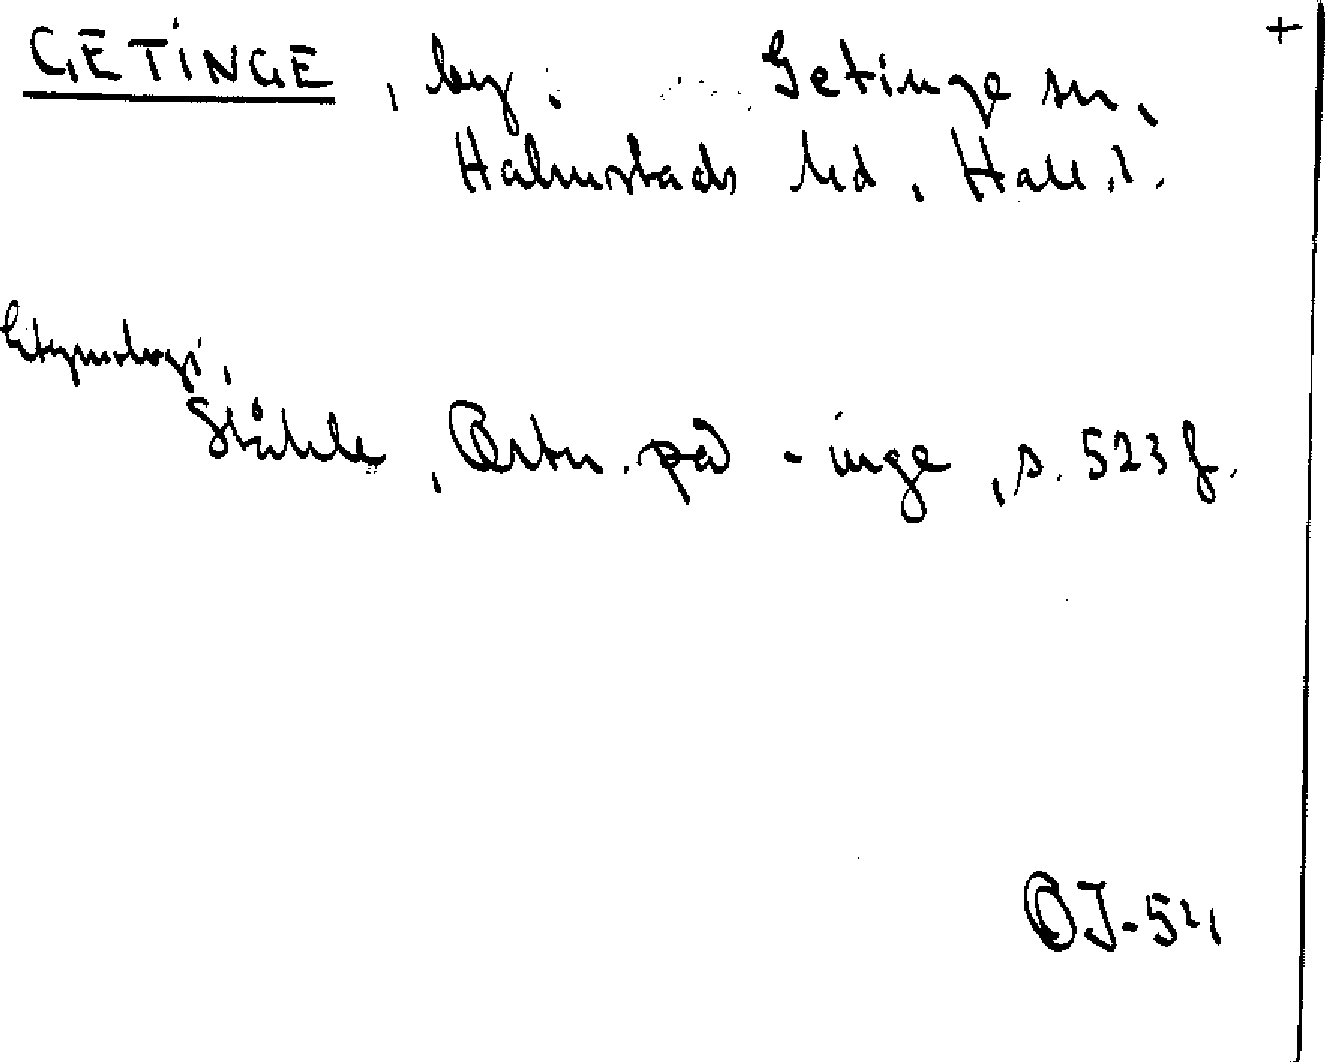 +
GETINGE, by. Getinge sn,
Halmstads hd, Hall. l.
Etymologi,
Ståhle, Ortn. på -inge, s. 523 f.
OJ-54